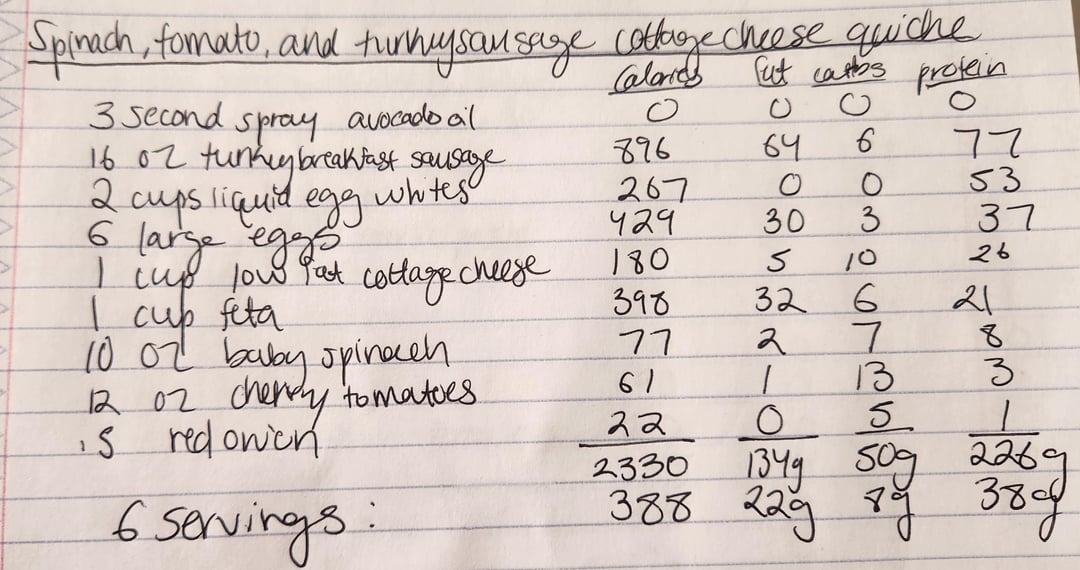 Spinach, tomato, and turkey sausage cottage cheese quiche
Calories fat carbs protein
3 second spray avocado oil 0 0 0 0
16 oz turkey breakfast sausage 896 64 6 77
2 cups liquid egg whites 267 0 0 53
6 large eggs 429 30 3 37
1 cup low fat cottage cheese 180 5 10 26
1 cup feta 398 32 6 21
10 oz baby spinach 77 2 7 8
12 oz cherry tomatoes 61 1 13 3
.5 red onion 22 0 5 1
2330 134g 50g 226g
6 servings: 388 22g 8g 38g